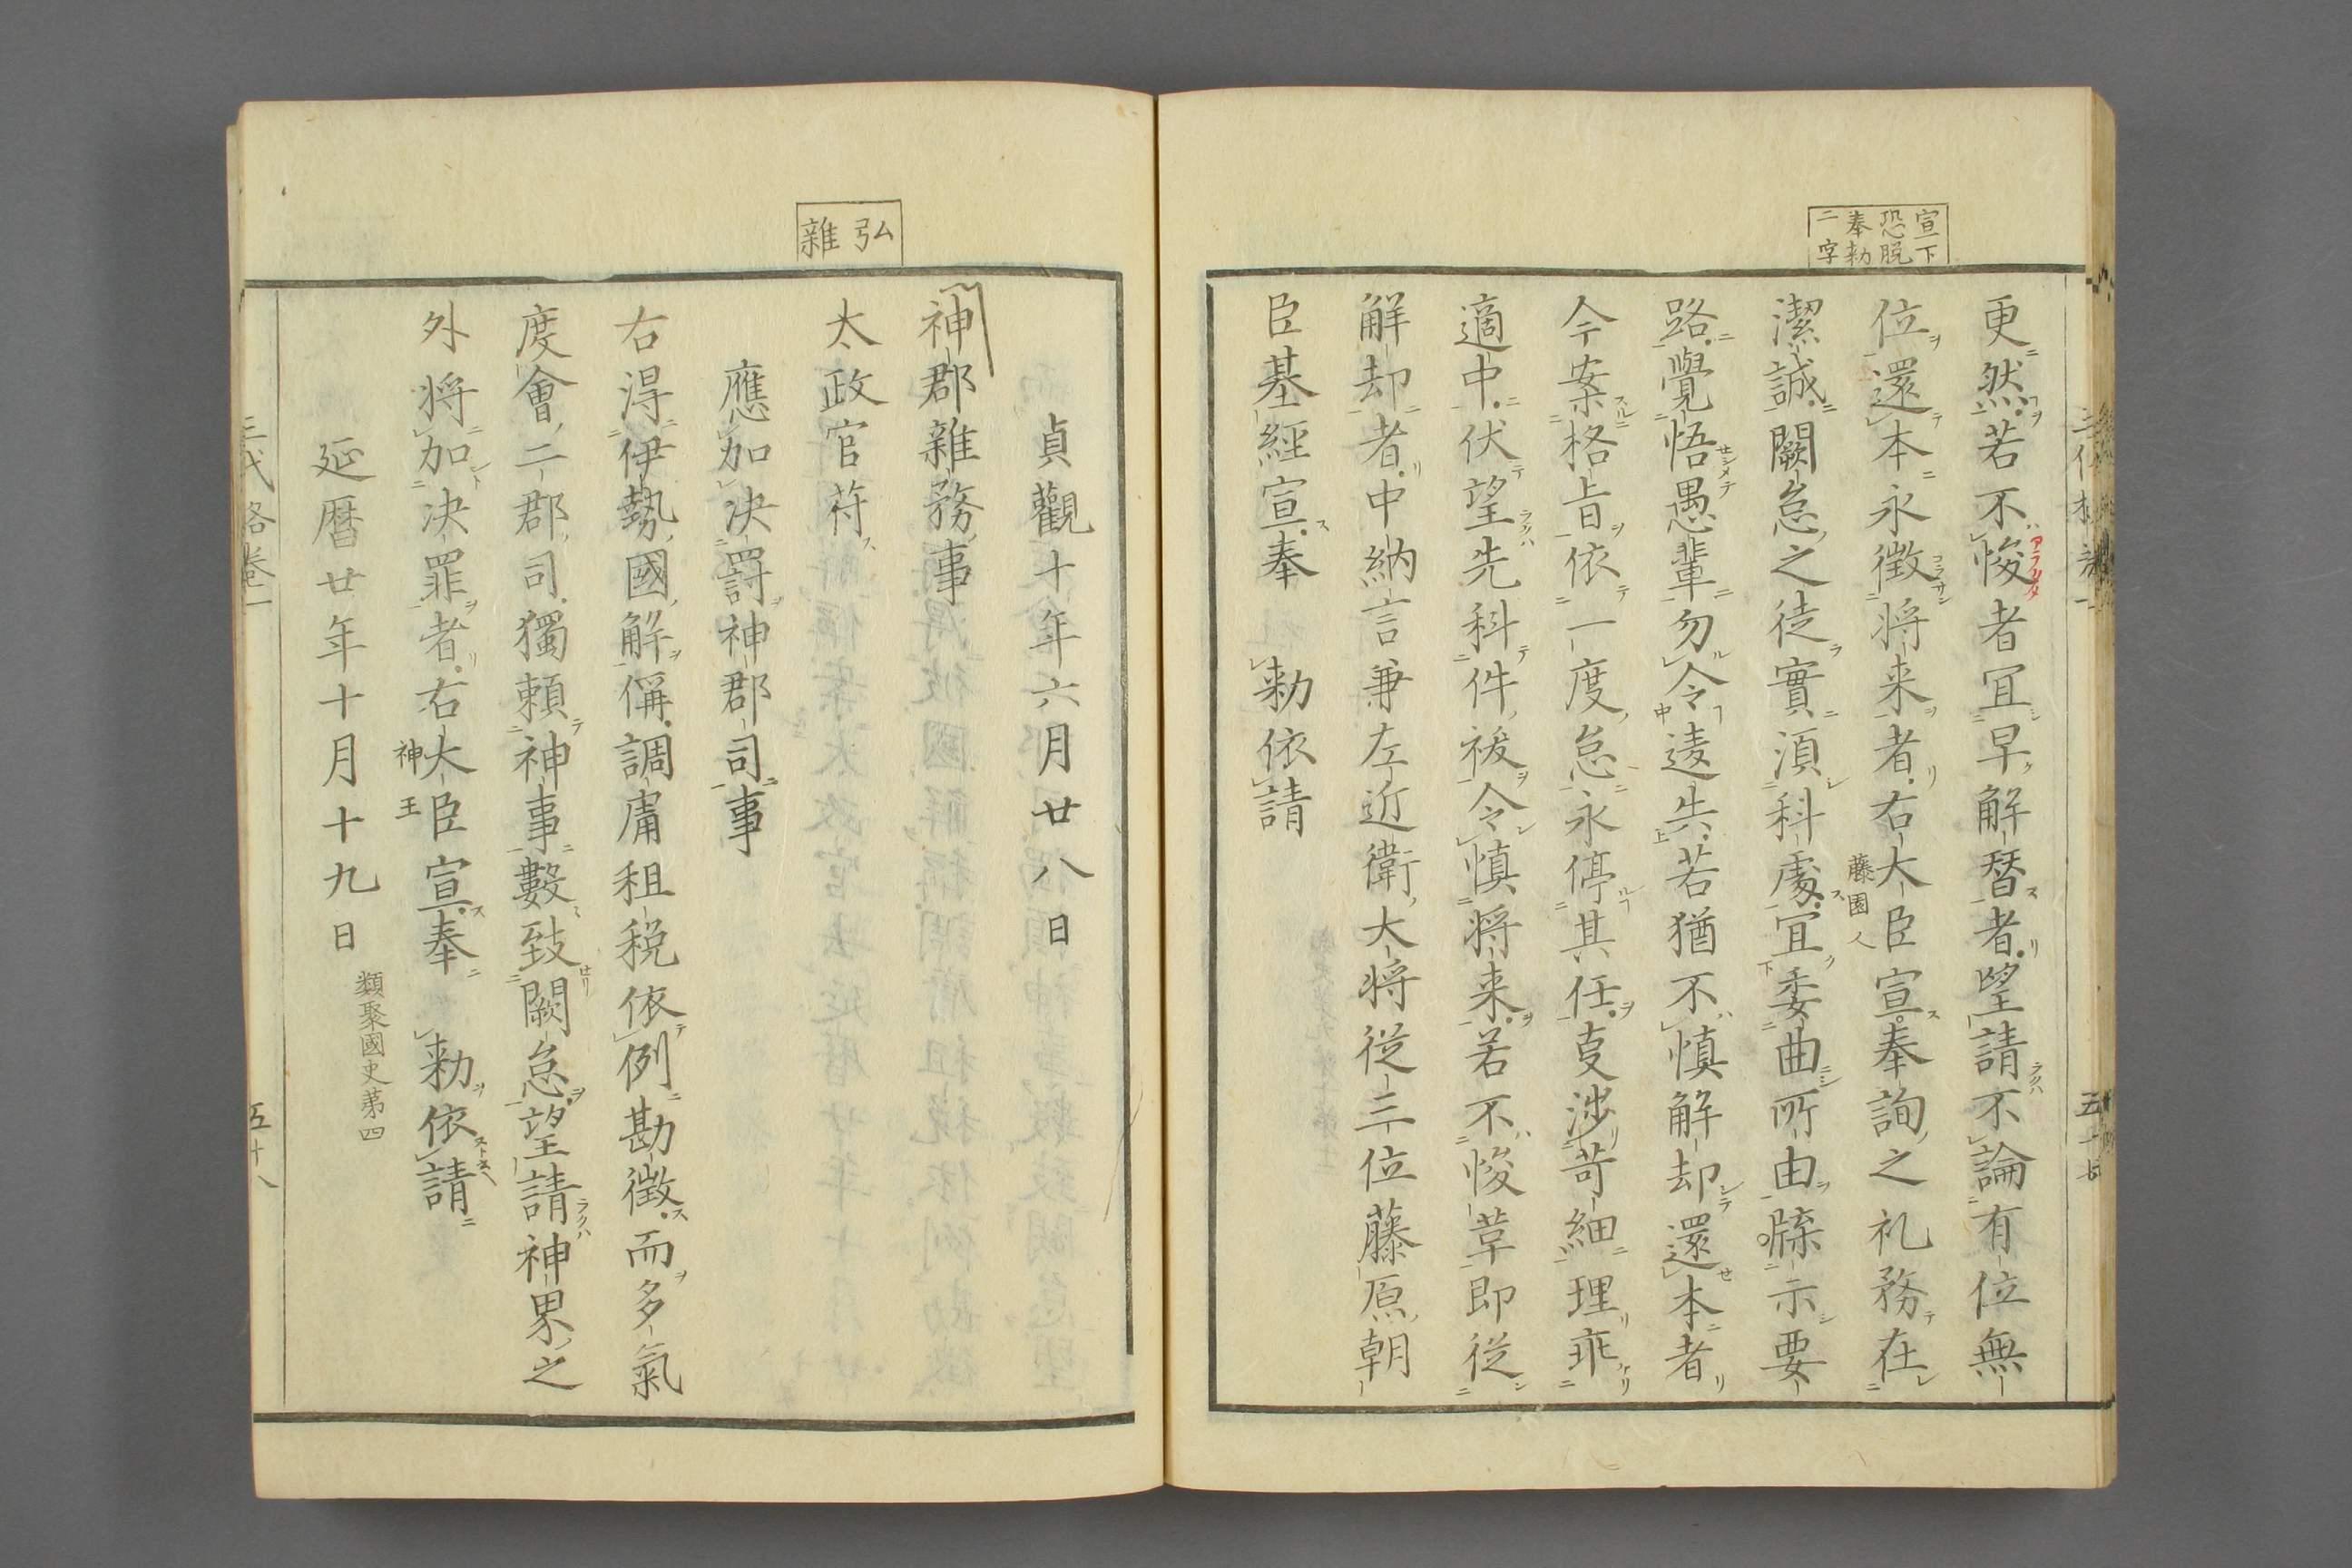 宣下
恐脱
奉勅
二字
更然若不悛者冝早解替者望請不論有位無
位還本永徴将来者右大臣宣奉詢之礼務在
藤園人
潔誠闕怠之徒實湏科處冝委曲所由牓示要
路覺悟愚輩勿令逺失若猶不慎解却還本者
今案格旨依一度怠永停其任叓渉苛細理乖
適中伏望先科件祓令慎将来若不悛革即從
解却者中納言兼左近衛大将從三位藤原朝
臣基經宣奉　勅依請
貞觀十年六月廿八日
弘
雜
神郡雜務事
太政官苻
應加决罸神郡司事
右淂伊勢國解偁調庸租税依例勘徴而多氣
度會二郡司獨頼神事數致闕怠望請神界之
外将加决罪者右大臣宣奉　勅依請
神王
延暦廿年十月十九日
類聚國史第四
三代格卷一
五十八